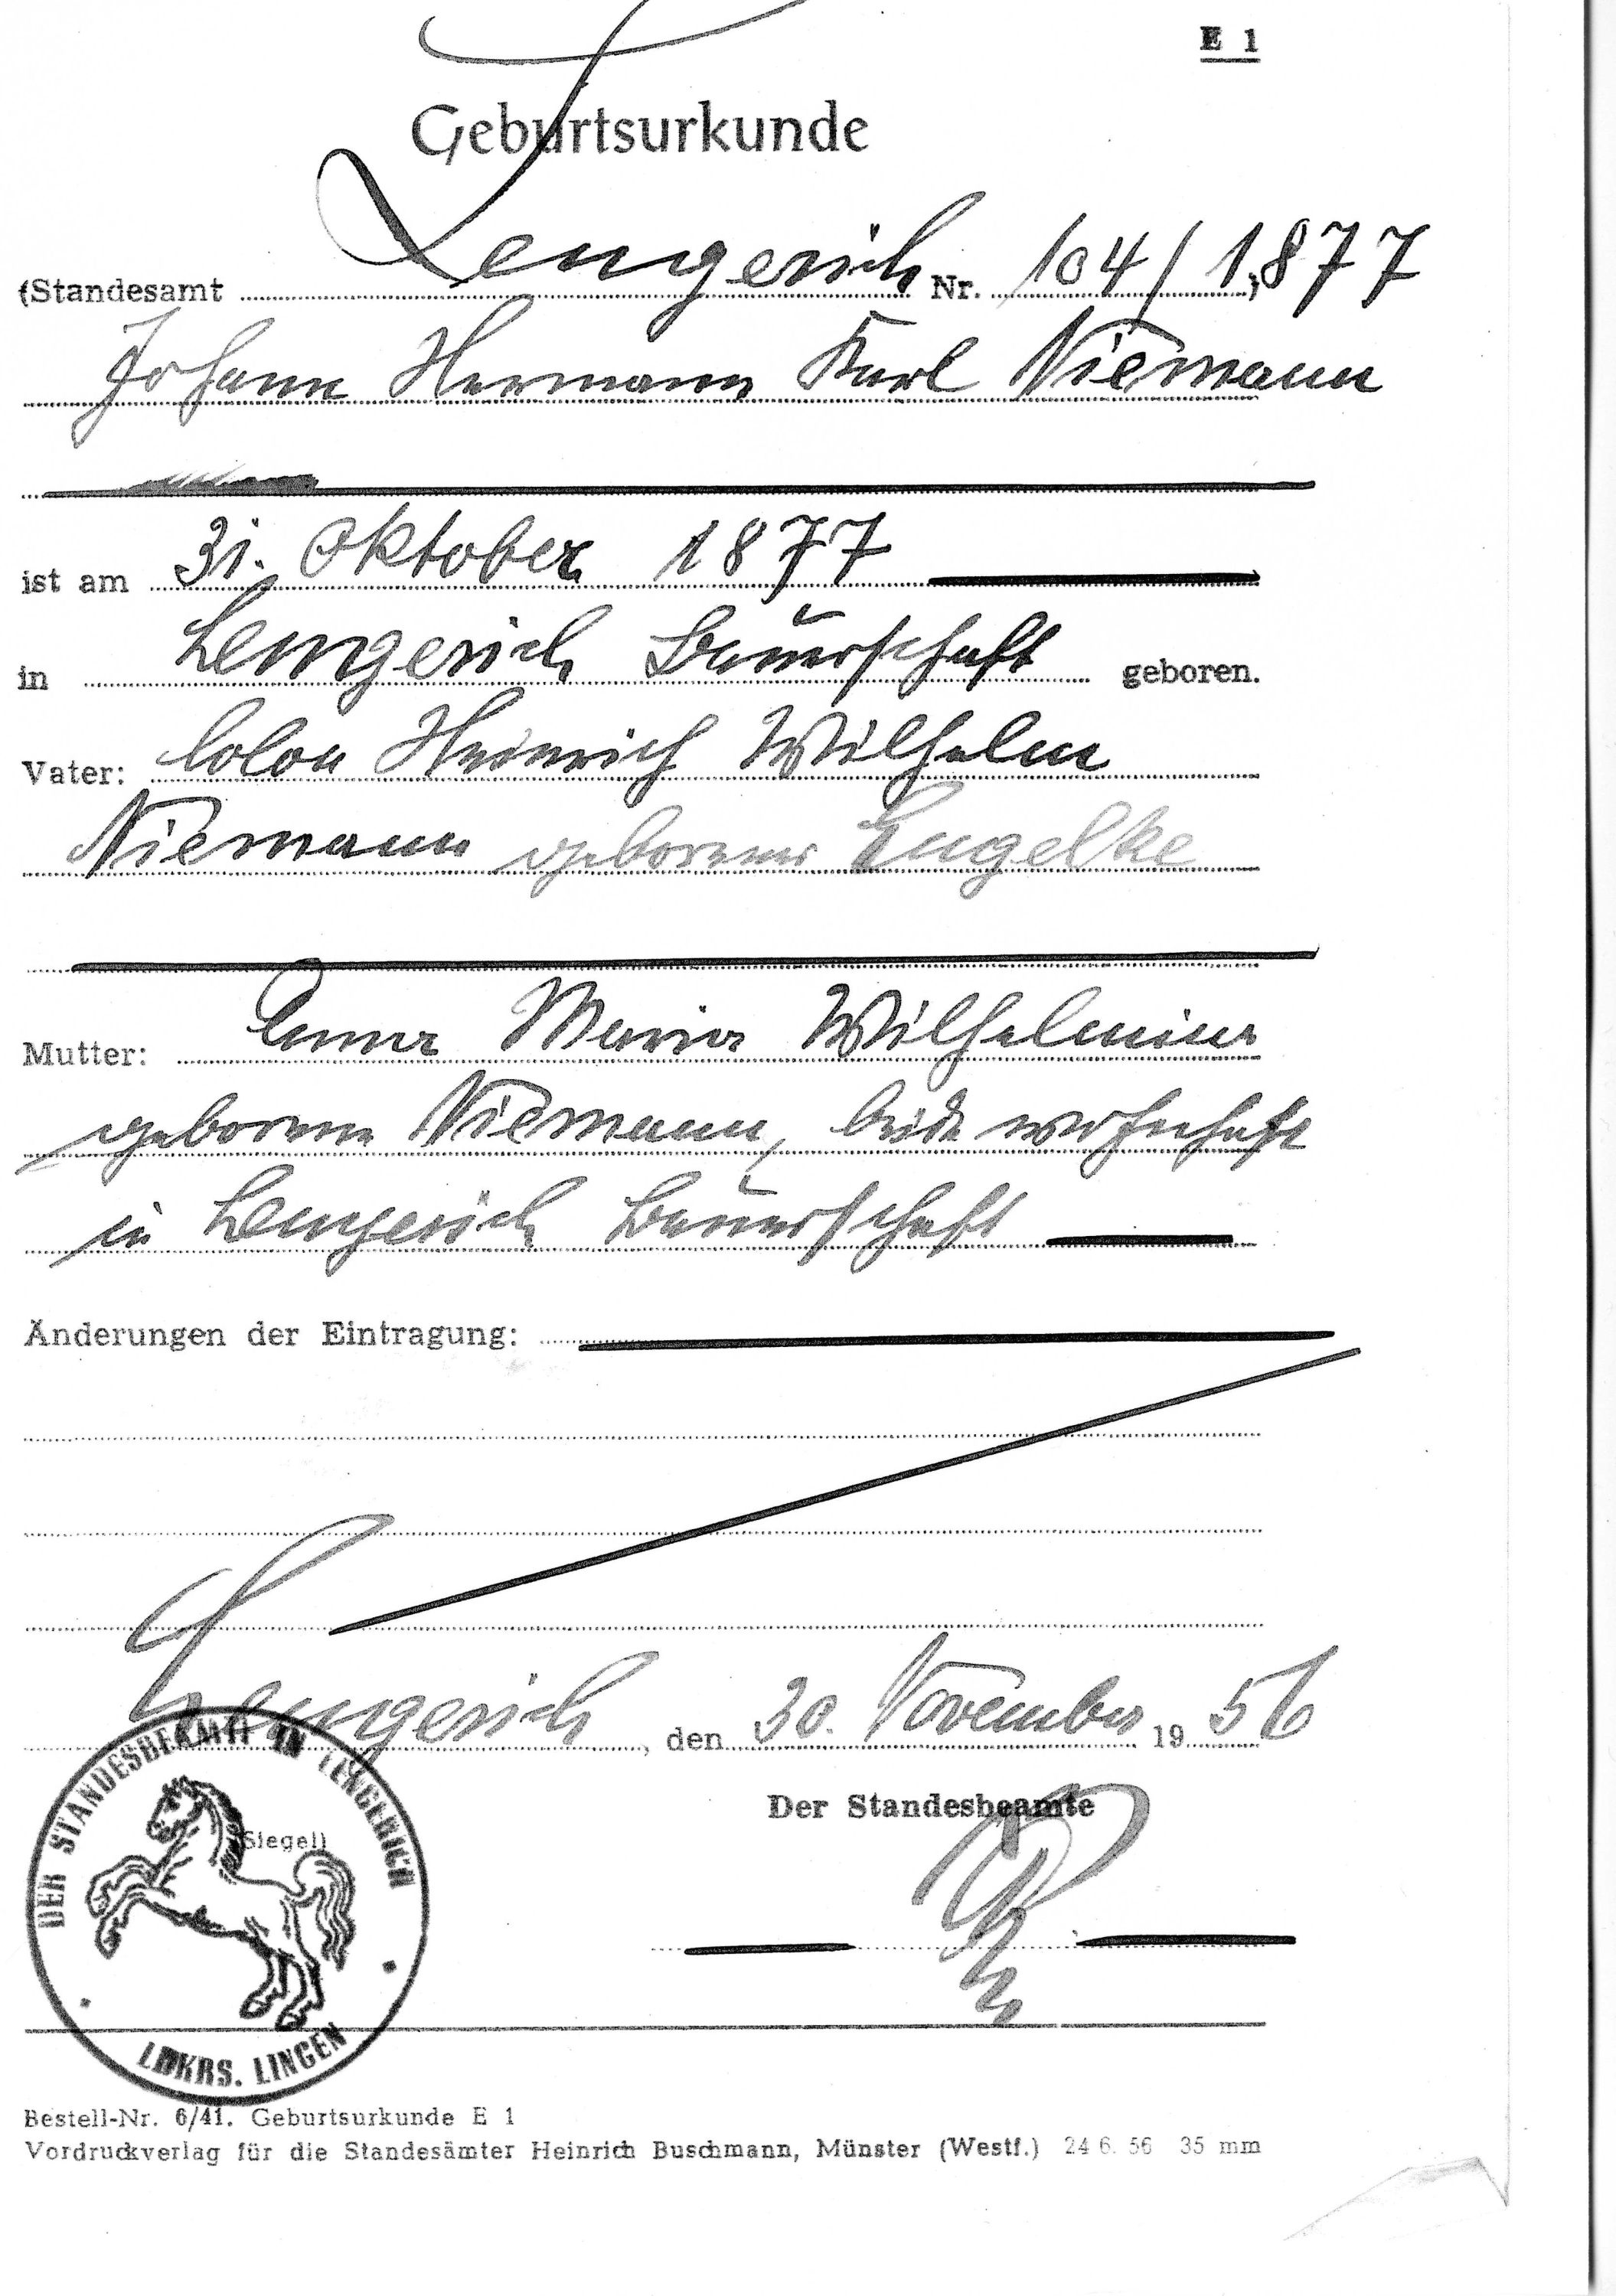 E 1
Geburtsurkunde
(Standesamt Lengerich Nr. 104/1877)
Johann Hermann Karl Niemann
ist am 31. Oktober 1877
in Lengerich Bauerschaft geboren.
Vater: Colon Heinrich Wilhelm
Niemann geborener Engelke
Mutter: Anna Maria Wilhelmine
geborene Niemann, beide wohnhaft
in Lengerich Bauerschaft
Änderungen der Eintragung:
Lengerich, den 30. November 1956
Der Standesbeamte
(Siegel)
DER STANDESBEAMTE IN LENGERICH
LDKRS. LINGEN
Bestell-Nr. 6/41. Geburtsurkunde E 1
Vordruckverlag für die Standesämter Heinrich Buschmann, Münster (Westf.) 24 6. 56 35 mm